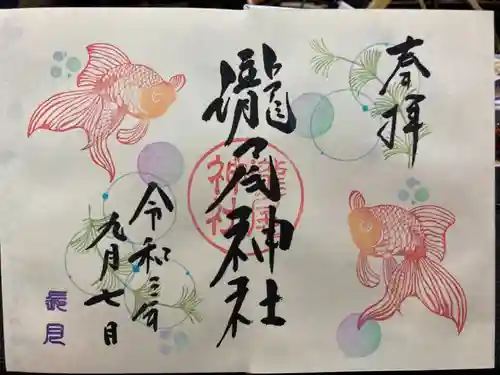 奉拝
瀧尾神社
瀧尾
神社
令和三年
九月七日
長月